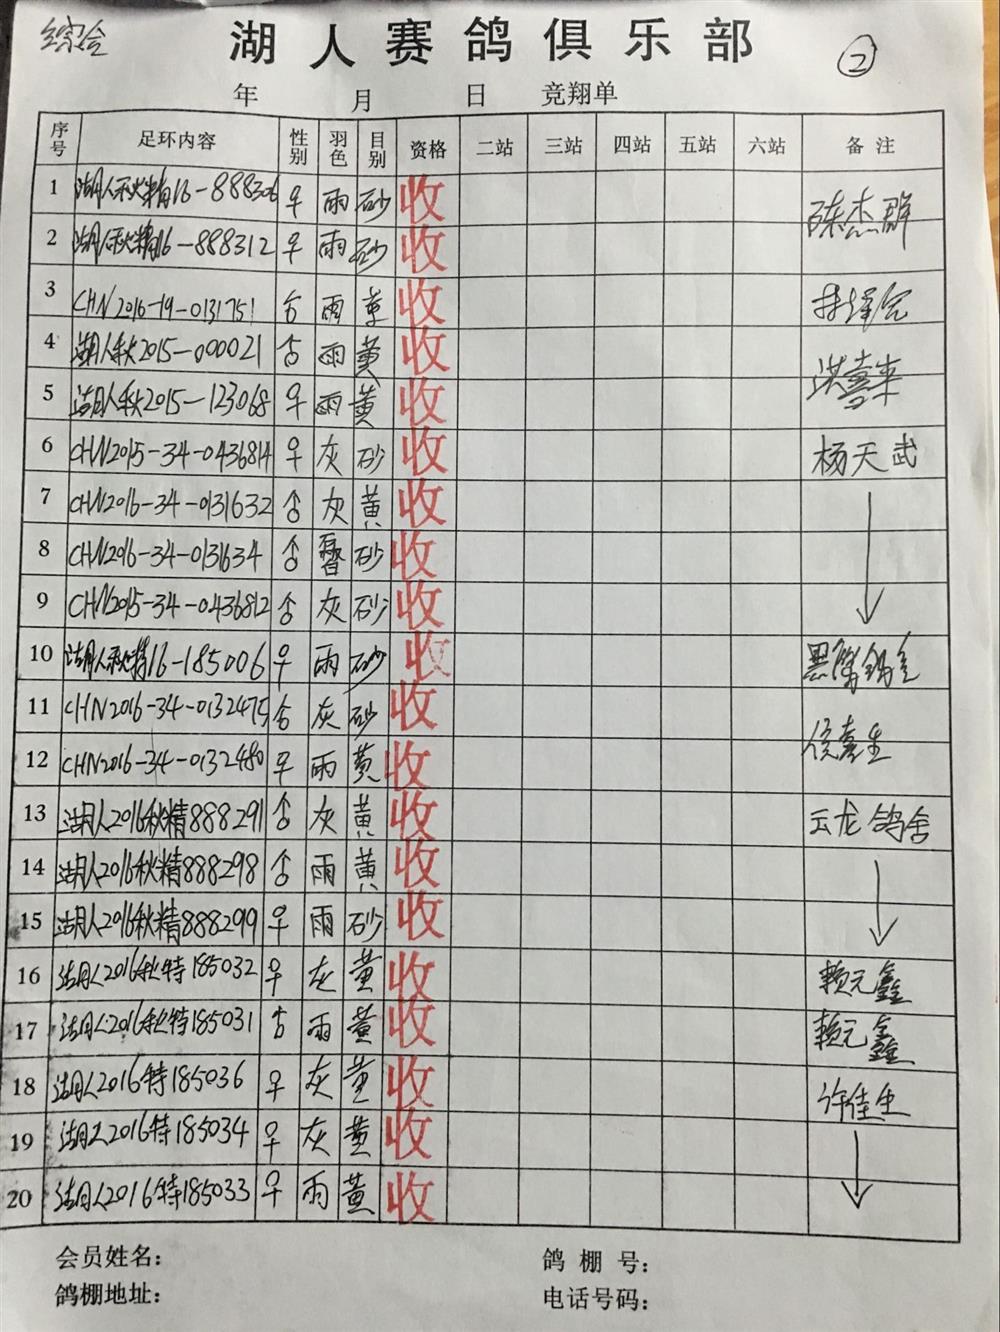 综合
湖人赛鸽俱乐部
②
年 月 日 竞翔单
序号 足环内容 性别 羽色 目别 资格 二站 三站 四站 五站 六站 备注
1 湖人秋精16-888306 ♀ 雨 砂 收 陈杰群
2 湖人秋精16-888312 ♀ 雨 砂 收
3 CHN2016-19-0131751 ♂ 雨 收
4 湖人秋2015-000021 ♂ 雨 黄 收 洪喜来
5 湖人秋2015-123068 ♀ 雨 黄 收
6 CHN2015-34-0436814 ♀ 灰 砂 收 杨天武
7 CHN2016-34-0131632 ♂ 灰 黄 收
8 CHN2016-34-0131634 ♂ 砂 收
9 CHN2015-34-0436812 ♂ 灰 砂 收
10 湖人秋特16-185006 ♀ 雨 砂 收
11 CHN2016-34-0132475 ♂ 灰 砂 收
12 CHN2016-34-0132480 ♀ 雨 黄 收
13 湖人2016秋精888291 ♂ 灰 黄 收 云龙鸽舍
14 湖人2016秋精888298 ♂ 雨 黄 收
15 湖人2016秋精888299 ♀ 雨 砂 收
16 湖人2016秋特185032 ♀ 灰 黄 收 赖元鑫
17 湖人2016秋特185031 ♂ 雨 黄 收 赖元鑫
18 湖人2016特185036 ♀ 灰 黄 收 许佳生
19 湖人2016特185034 ♀ 灰 黄 收
20 湖人2016特185033 ♀ 雨 黄 收
会员姓名： 鸽棚号：
鸽棚地址： 电话号码：